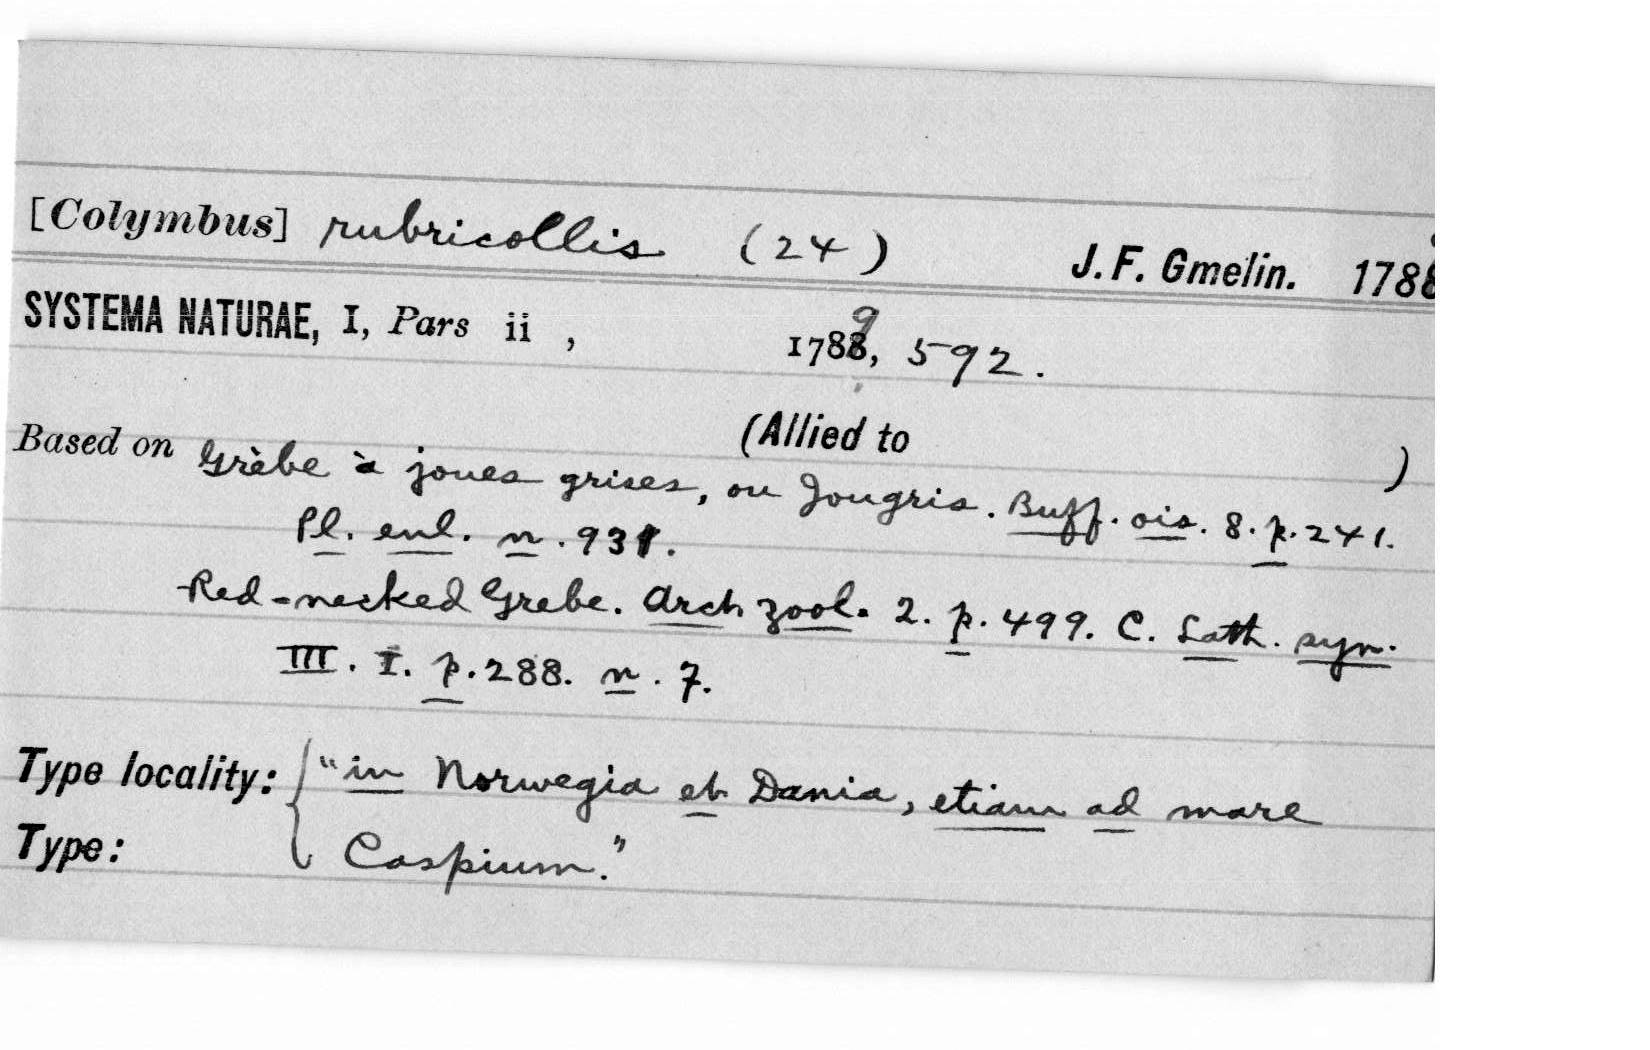 [Colymbus] rubricollis (24) J. F. Gmelin. 1788
SYSTEMA NATURAE, I, Pars ii, 1789, 592.
(Allied to )
Based on Grèbe à joues grises, ou Jougris. Buff. ois. 8. p. 241.
Pl. enl. n. 931.
Red-necked Grebe. Arch. zool. 2. p. 499. C. Lath. syn.
III. I. p. 288. n. 7.
Type locality: { "in Norwegia et Dania, etiam ad mare
Type: Caspium."